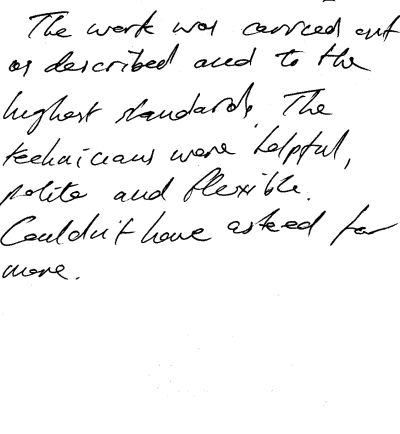 The work was carried out
as described and to the
highest standards. The
technicians were helpful,
polite and flexible.
Couldn't have asked for
more.